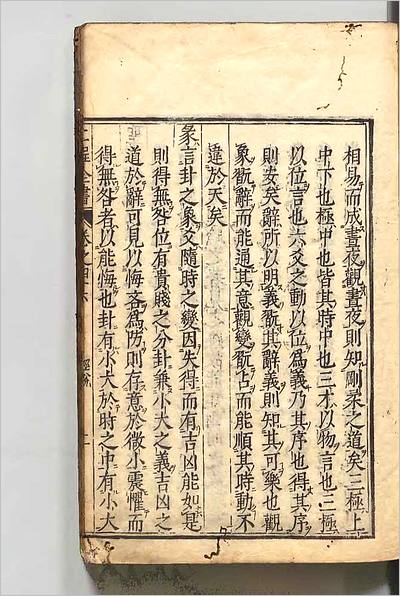 相易而成晝夜觀晝夜則知剛柔之道矣三極上
中下也極中也皆其時中也三才以物言也三極
以位言也六爻之動以位爲義乃其序也得其序
則安矣辭所以明義翫其辭義則知其可樂也觀
象翫辭而能通其意觀變翫占而能順其時動不
違於天矣
彖言卦之象爻隨時之變因失得而有吉凶能如是
則得無咎位有貴賤之分卦兼小大之義吉凶之
道於辭可見以悔吝爲防則存意於微小震懼而
得無咎者以能悔也卦有小大於時之中有小大
二程全書
卷之四十六
經說
一